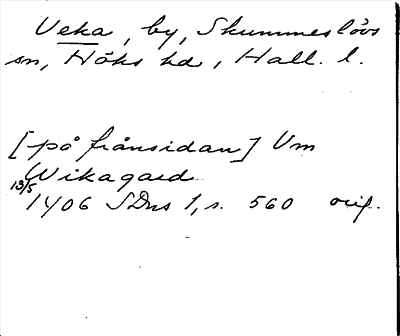 Veka, by, Skummeslövs
sn, Höks hd, Hall. l.
[på frånsidan] Vm
Wikagard
13/5
1406 SDns 1, s. 560 orig.